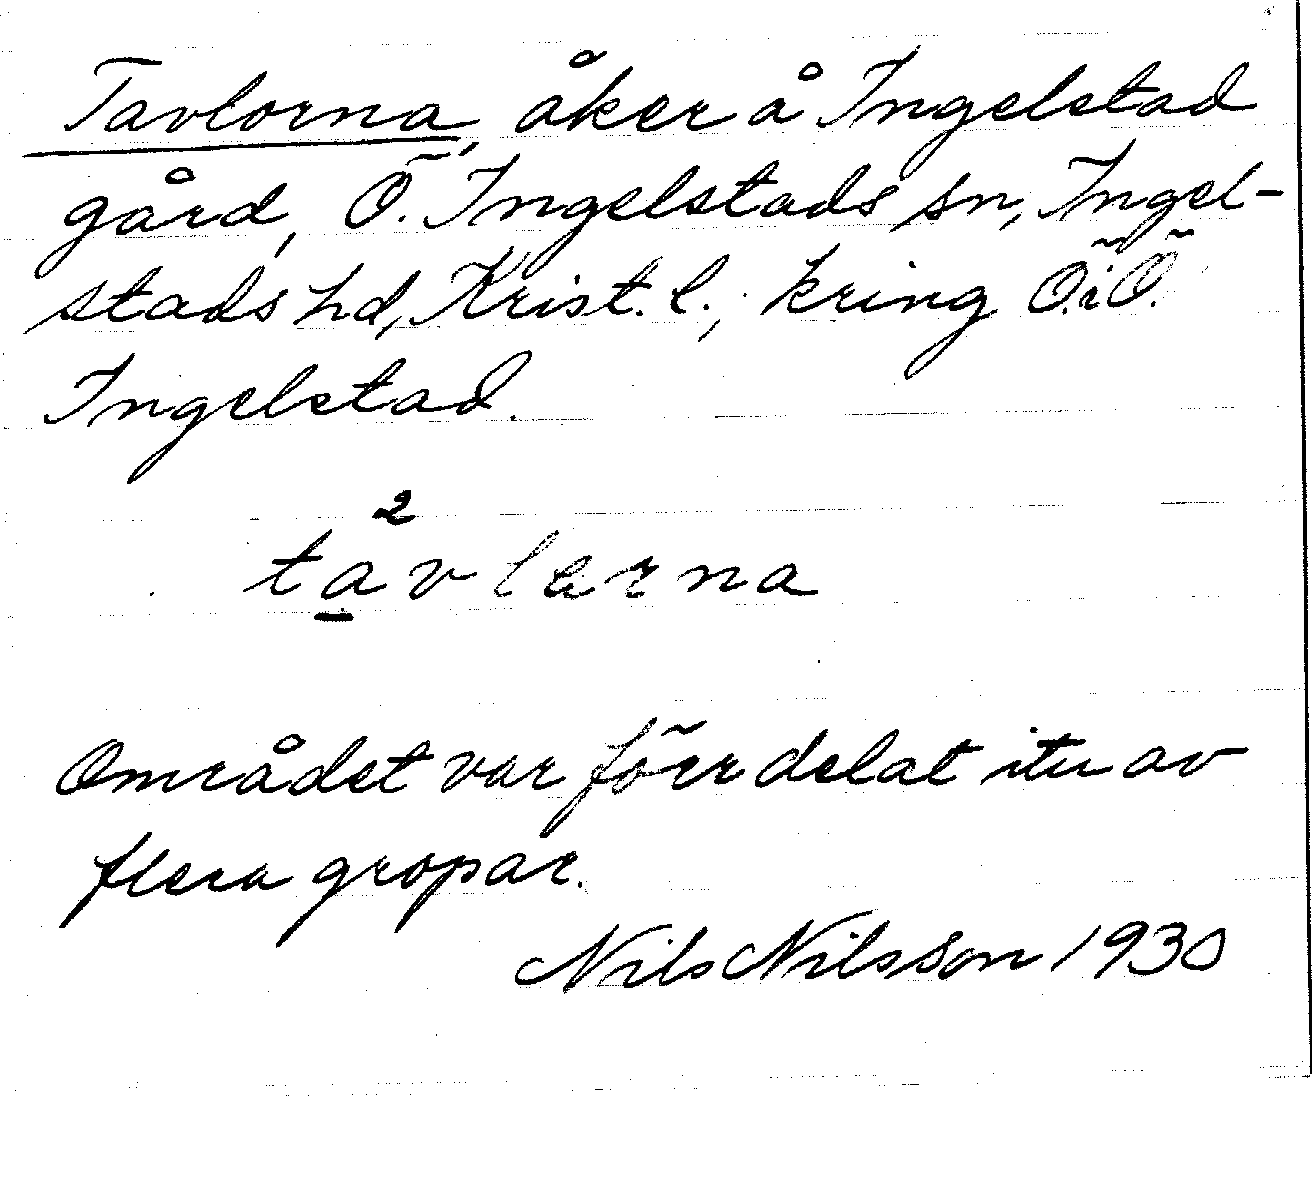 Tavlorna, åker å Ingelstad
gård, Ö. Ingelstads sn, Ingel-
stads hd, Krist. l.; kring Ö.i Ö.
Ingelstad.
2
tavlarna
Området var förr delat itu av
flera gropar.
Nils Nilsson 1930